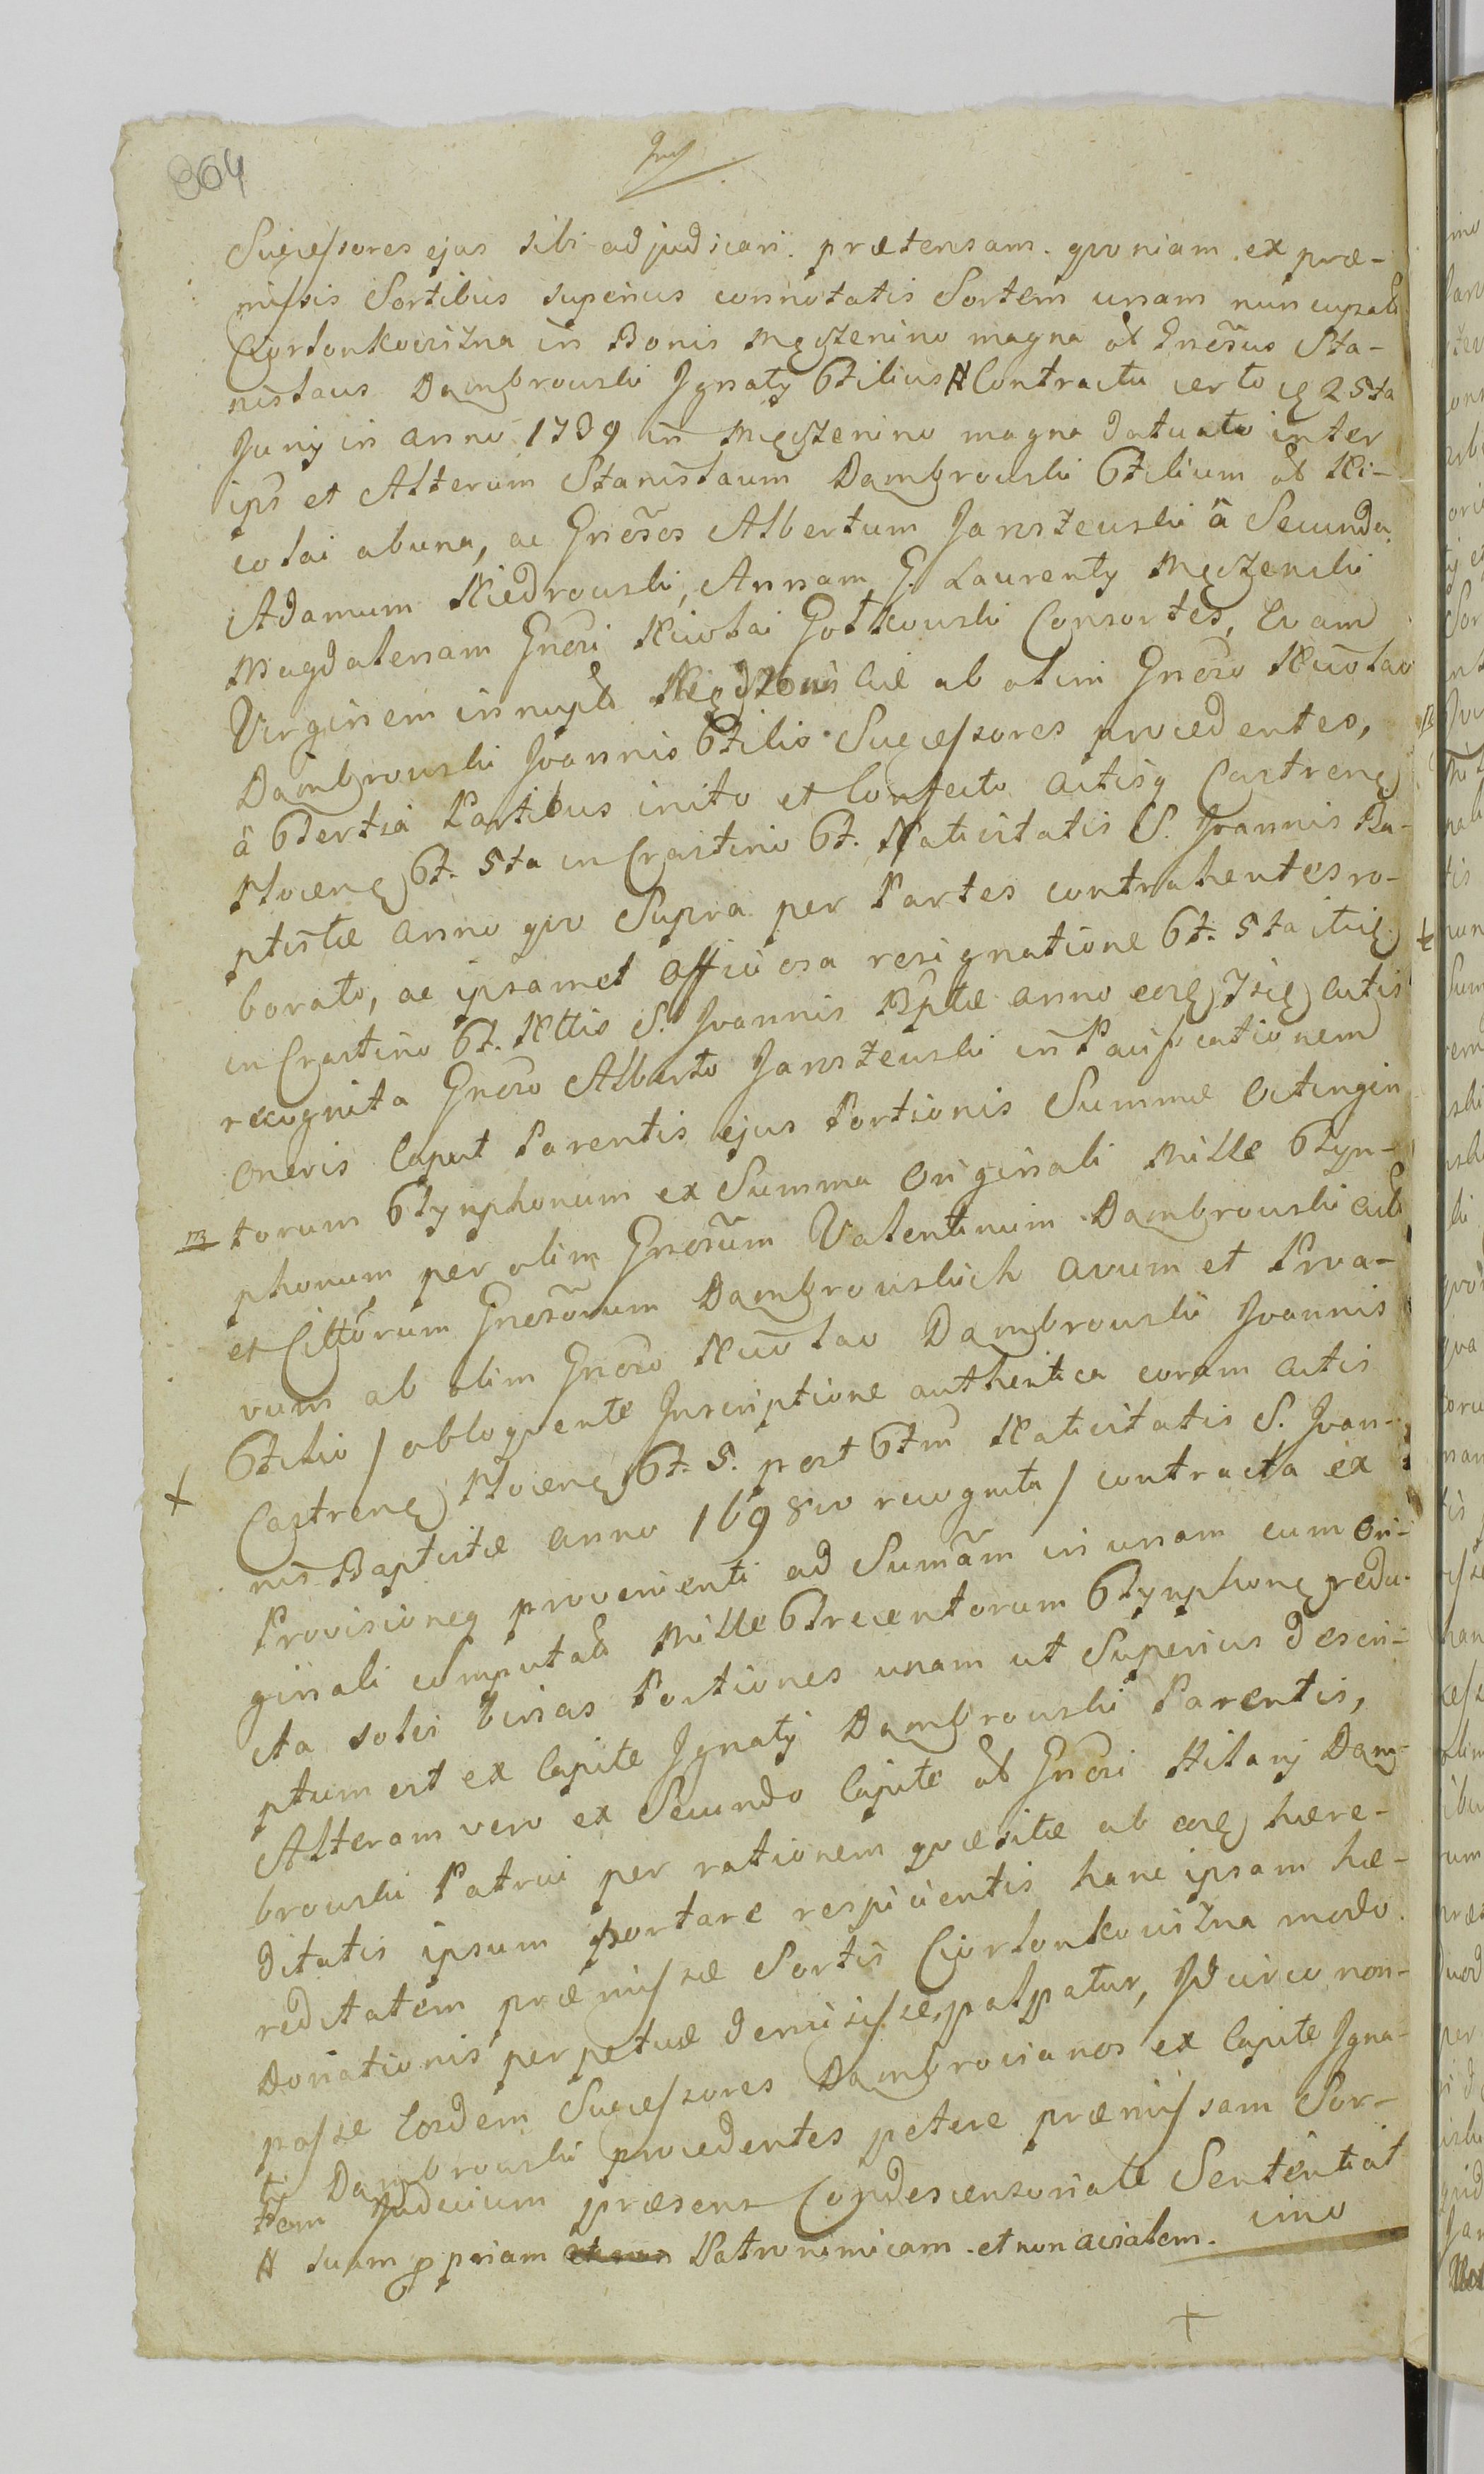 864
Successores ejus sibi adjudicari prætensam. qvoniam ex præ-
missis Sortibus superius connotatis Sortem unam nuncupatã
Ciortonkowizna in Bonis Męczenino magna ol Gnesus Sta-
nislaus Dambrowski Ignaty Filius # Contractu certo 25ta
Juny in anno 1739 in Męczenino magna datuato inter
ips et Alterum Stanislaum Dambrowski Filium ol Ni-
colai ab una, ac Gnesos Albertum Janszewski â Secunda
Adamum Niedrowski, Annam G. Laurenty Męczenski
Magdalenam Gnesi Nicolai Gotkowski Consortes, Evam
Virginem innuptã ab olim Gneso Nicolao
Dambrowski Joannis Filio Successores procedentes,
â Tertia Partibus inito et Confecto Actisq Castren
Plocen F. 5ta in Crastino F. Nativitatis S. Joannis Ba-
ptistæ anno qvo Supra per Partes contrahentes ro-
borato, ac ipsamet officiosa resignatione F. 5ta itid
in Crastino F. Nttis S. Joannis Bptæ anno eod Iisd actis
recognita Gneso Alberto Janszewski in Pacificationem
oneris Caput Parentis ejus Portionis Summæ Octingin
m torum Tynphonum ex Summa Originali Mille Tyn-
phonum per olim Gnesum Valentinum Dambrowski
et Cittorum Gnesorum Dambrowskich avum et Proa-
vum ab olim Gneso Nicolao Dambrowski Joannis
Filio / obloqvente Inscriptione authentica coram actis
+ Castren Plocen F. 5. post Ftm Nativitatis S. Joan-
nis Baptistæ anno 1698vo recognita / contracta ex
Provisione provenienti ad Summam in unam cum Ori-
ginali computatã Mille Trecentorum Tynphon redu-
cta solvi binas Portiones unam ut Superius descri-
ptum est ex Capite Ignaty Dambrowski Parentis,
Alteram vero ex Secundo Capite ol Gnesi Hilary Dam-
browski Patrui per rationem qvæsitæ ab eod hære-
ditatis ipsum portare respicientis hanc ipsam hæ-
reditatem præmissæ Sortis Ciortonkowizna modo
Donationis perpetuæ demisisse palpatur, Idcirco non-
posse Eosdem Successores Dambrovianos ex Capite Igna-
ti Dambrowski procedentes petere præmissam Sor-
tem Judicium præsens Condescensoriale Sententiat
# suam ppriam et non Patronimicam et non avialem. imo
+